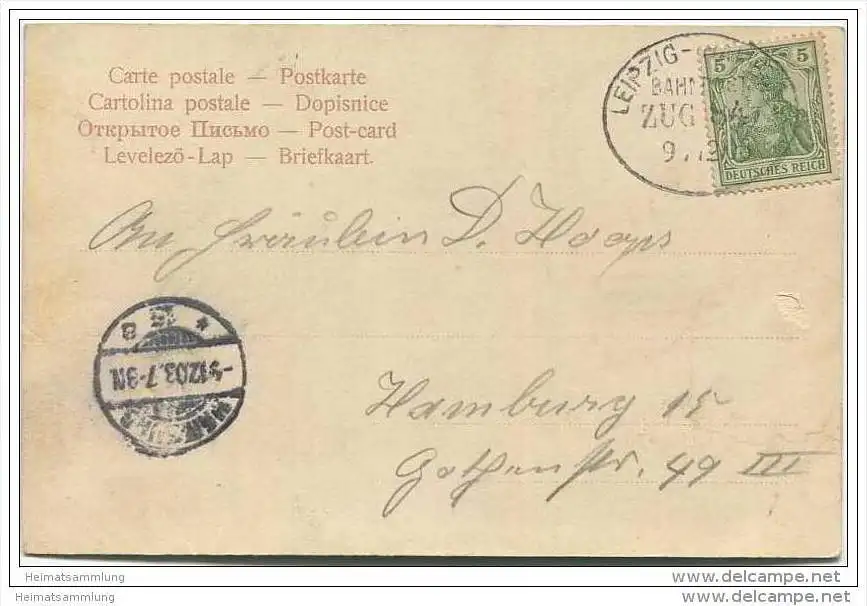 Carte postale — Postkarte
Cartolina postale — Dopisnice
Открытое Письмо — Post-card
Levelező-Lap — Briefkaart.
LEIPZIG-
ZUG
5 5
DEUTSCHES REICH
An Fräulein D. Hoops
* 15 8
12.03.7-8N.
Hamburg 15
Gothenstr. 49 III
Heimatsammlung
Heimatsammlung
www.delcampe.net
www.delcampe.net